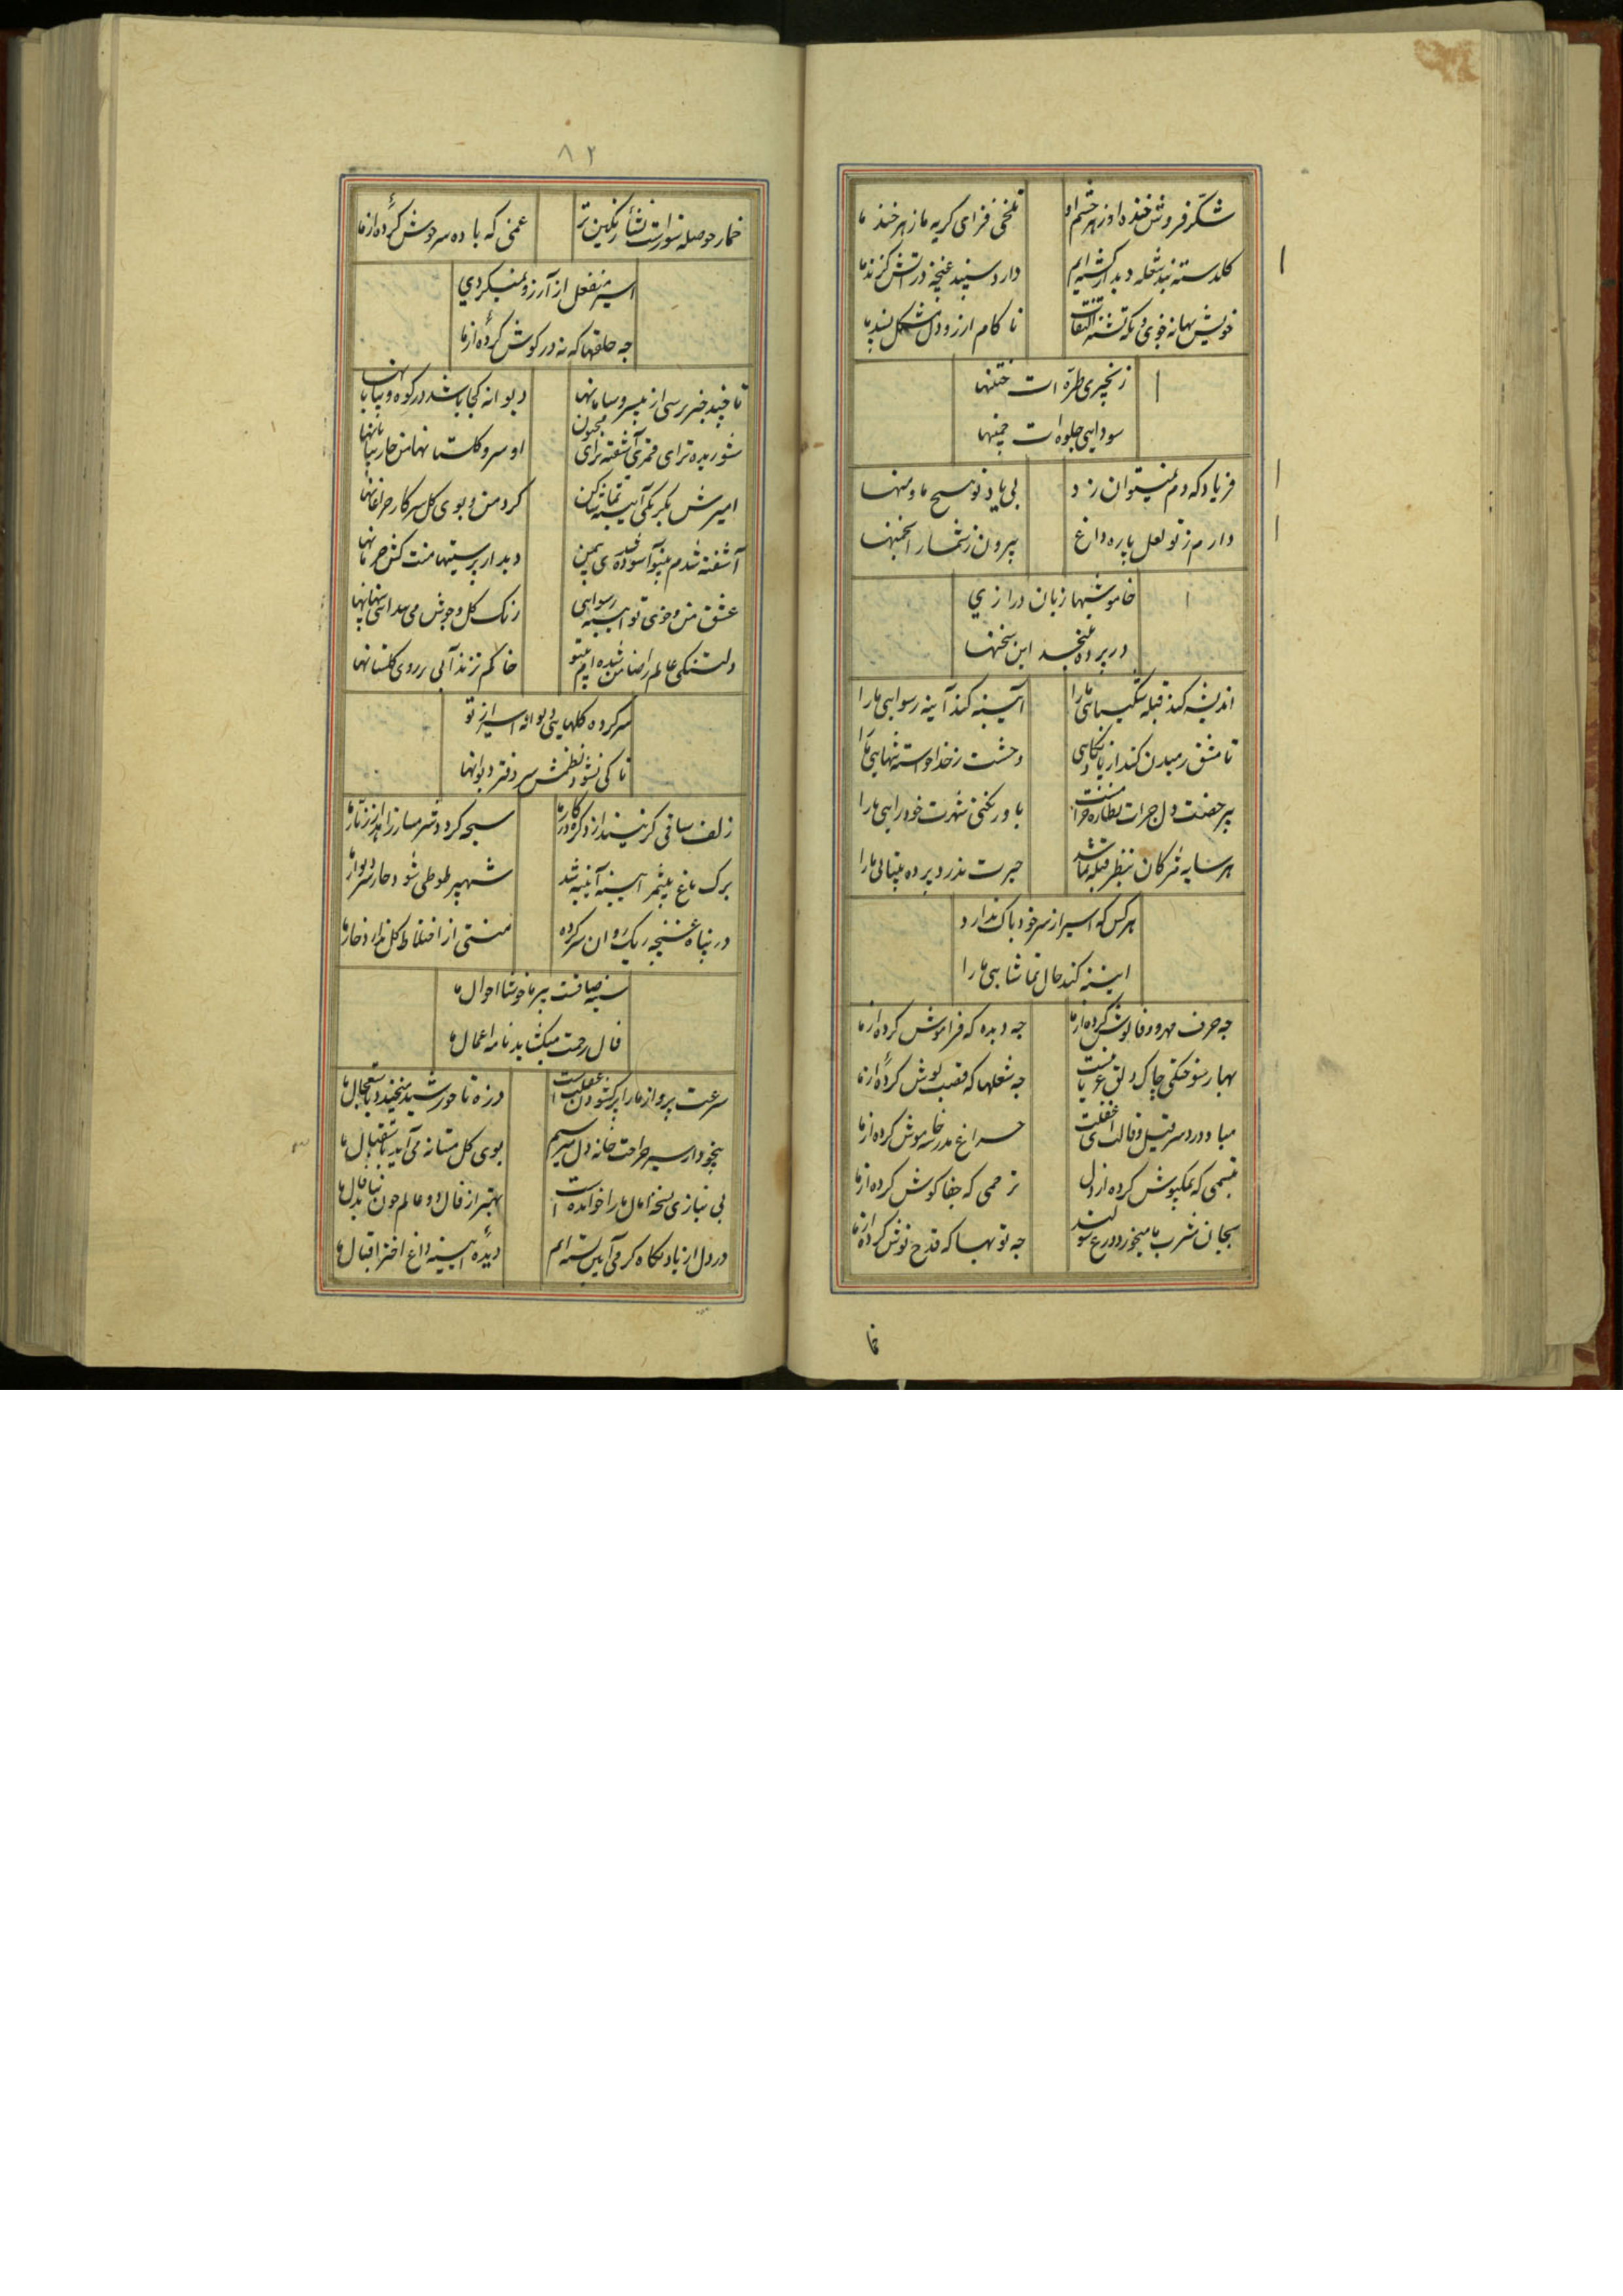 شکر فروش خنده او زهر چشم او
تلخی فزای گریه ما زهرخند ما
کلدسته بند شعله دیدار کشته ایم
دارد سپند غنچه در آتش گزند ما
خویش بهانه جوی و نکه تشنه التفات
نا کام ارزو دل مشکل پسند ما
زنجیری طره ات ختنها
سودایی جلوه ات چمنها
فریاد که دم نمیتوان زد
بی یاد تو هیچ ما و منها
دارم ز تو لعل پاره داغ
بیرون ز شمار انجمنها
خاموشیها زبان درازی
در پرده نمیخسد این سخنها
اندیشه کند قبله شکیبایی ما را
آیینه کند آینه رسوایی ما را
تا مشق رمیدن کند از یاد نگاهی
وحشت ز خدا خواسته تنهایی ما را
باور نکنی شهرت خودرایی ما را
هر سایه مژکان بنظر قبله نما شد
حیرت ندرد پرده بینایی ما را
هر کس که اسیر از سر خود باک ندارد
ایینه کند حال تماشایی ما را
چه حرف مهر و وفا گوش کرده از ما
چه دیده که فراموش کرده از ما
بهار سوختگی چاک دلق عریانیست
چه شعلها که قصب پوش کرده از ما
مباد دردسر قیل و قالت ای غفلت
چراغ مدرسه خاموش کرده از ما
تبسمی که نمکپوش کرده از دل
ترحمی که جفا کوش کرده از ما
بجان شرب ما میخورد ورع سوکند
چه توبها که قدح نوش کرده از ما
خما
۸۲
خمار حوصله سوز است نشأ رنگین تر
غمی که باده سرجوش کرده از ما
اسیر منفعل از آرزو نمیکردی
چه حلقها که نه در گوش کرده از ما
تا چند خبر پرسی از بیسر و سامانها
دیوانه کجا باشد در کوه و بیابانها
شوریده تر ای قمری آشفته تر ای مجنون
او سرو گلستانها من خار بیابانها
امیزش یکرنگی آیینه تماشا کن
گرد من و بوی گل سرکار چراغانها
آشفته شدم بیتو آسوده شدی بیمن
دیدار پرستیها منت کش حرمانها
عشق من و خوی تو ایینه رسوایی
رنگ گل و جوش می پیدایی پنهانها
دلتنگی عالم را ضامن شده ام بیتو
خاکم نزند آبی بر روی گلستانها
سر کرده گلهایی دیوانه اسیر از تو
تا کی نشود نظمش سر دفتر دیوانها
زلف ساقی گر نیندازد گره در کار ما
سبحه گردد شرمسار زاهد از زنار ما
برک باغ بیثمر ایینه آیینه شد
شهپر طوطی شود خار سر دیوار ما
در پناه غنچه ریک روان سر کرده
منتی از اختلاط گل ندارد خار ما
سینه صافست پیر ما خوشا احوال ما
فال رحمت میکشاید نامه اعمال ما
سرعت پرواز ما را پر کشودن غفلت است
ذره تا خورشید میخندد باستعجال ما
بیخود از سیر جراحت خانه دل میرسیم
بوی گل مستانه می آید باستقبال ما
بی نیازی نسخه امال ما را خوانده است
بهتر از فال دو عالم چون نباشد فال ما
در دل از یاد نگاه گرمی آیین بسته ایم
دیده ایینه داغ اختر اقبال ما